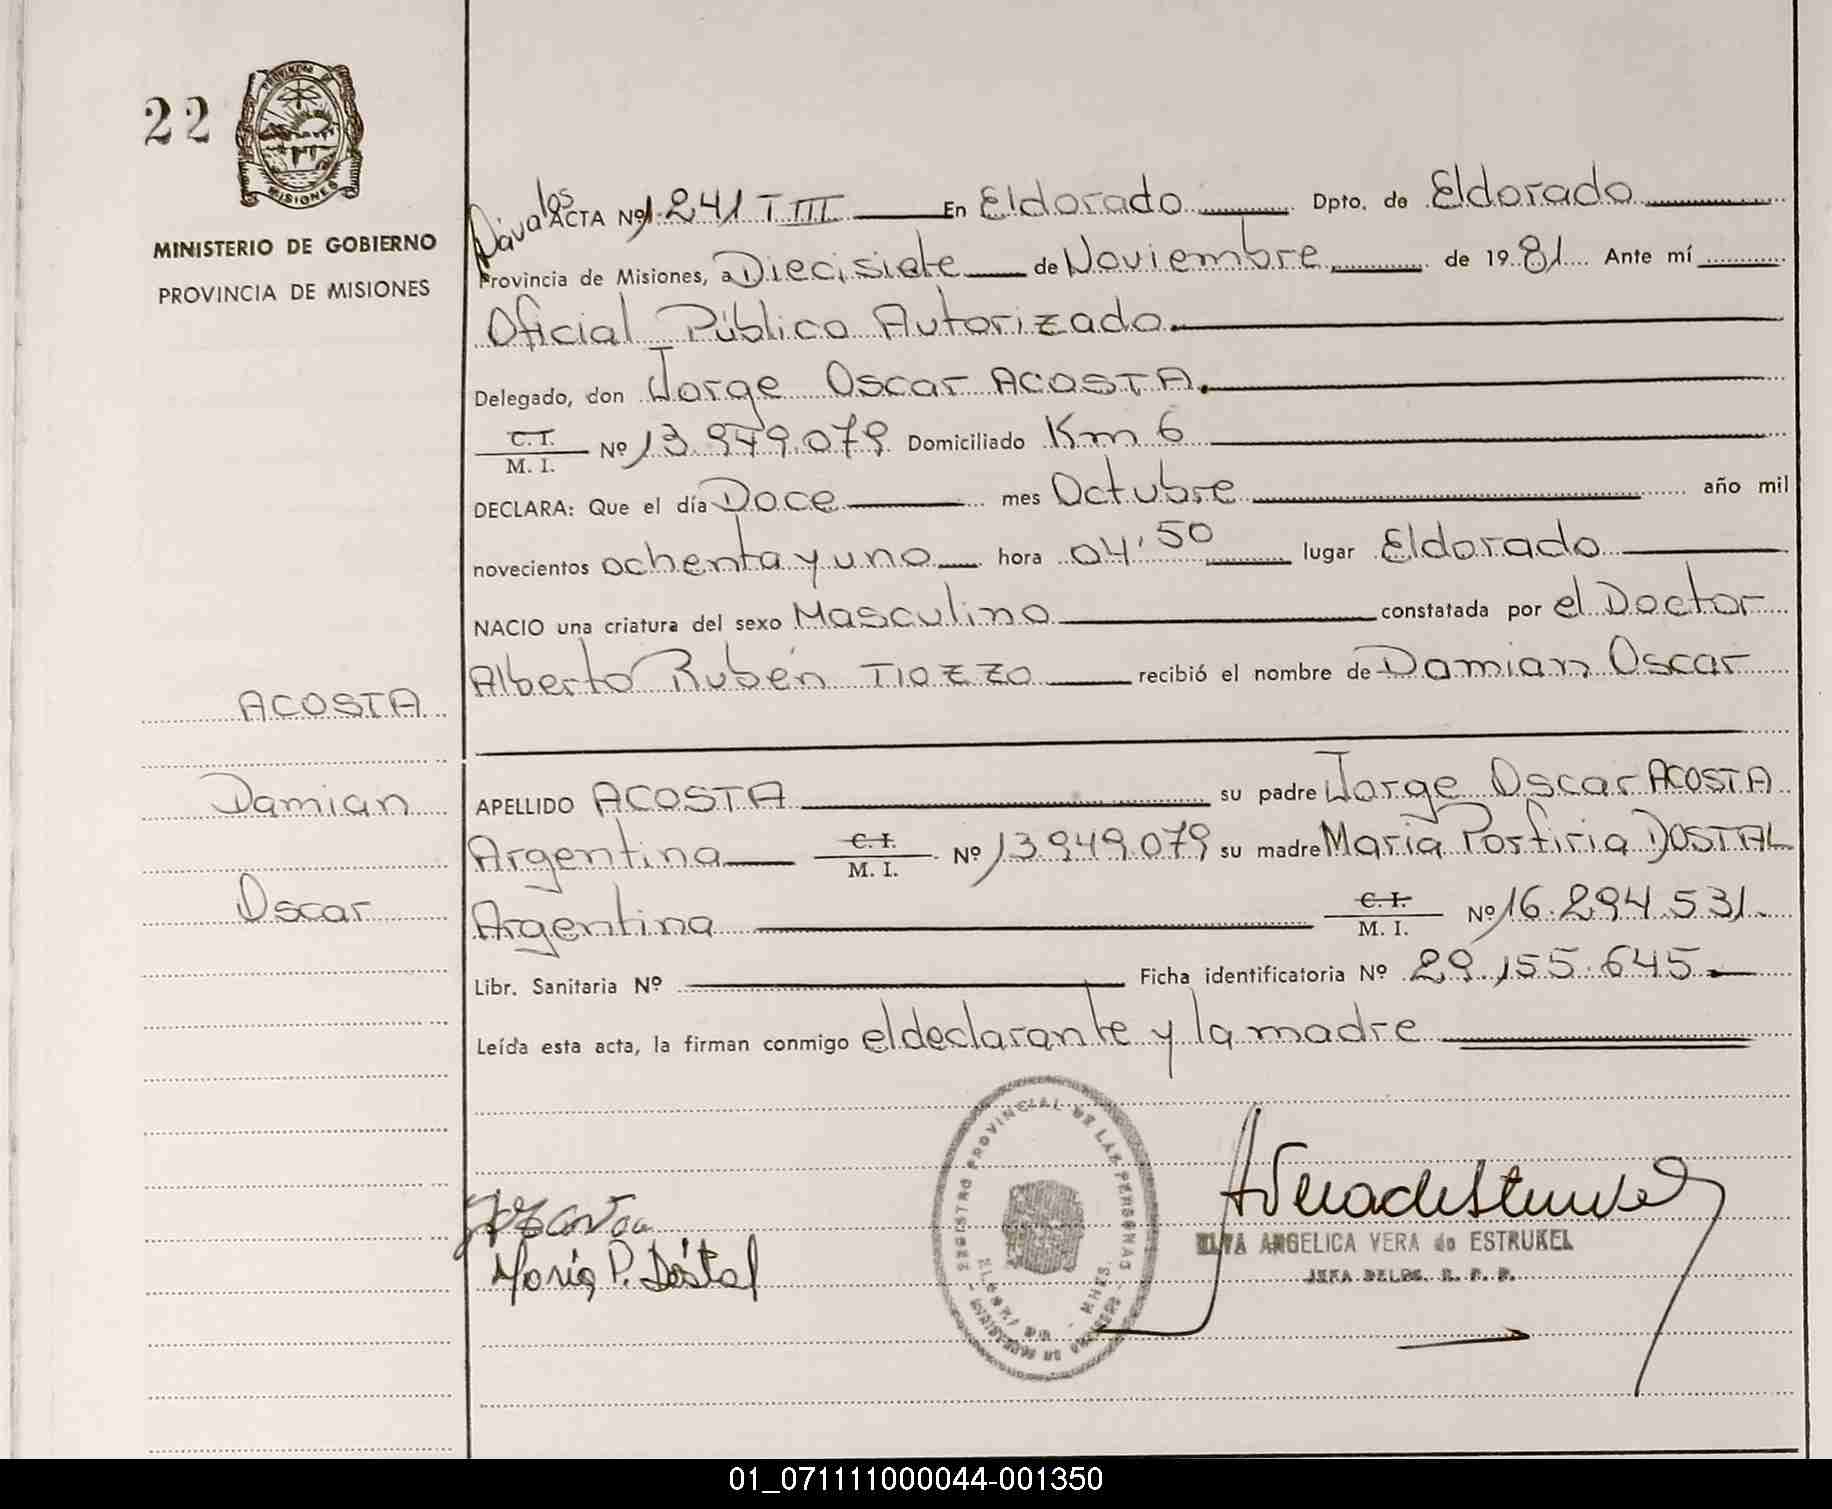 22
PROVINCIA DE
MISIONES
MINISTERIO DE GOBIERNO
PROVINCIA DE MISIONES
ACTA Nº 1.241 T III En Eldorado Dpto. de Eldorado
Provincia de Misiones, a Diecisiete de Noviembre de 1981 Ante mí
Oficial Público Autorizado.
Delegado, don Jorge Oscar ACOSTA.
C. I.
M. I. Nº 13.949.079 Domiciliado Km 6
DECLARA: Que el día Doce mes Octubre año mil
novecientos ochenta y uno hora 04'50 lugar Eldorado
NACIO una criatura del sexo Masculino constatada por el Doctor
Alberto Rubén TIOZZO recibió el nombre de Damian Oscar
ACOSTA
Damian
Oscar
APELLIDO ACOSTA su padre Jorge Oscar ACOSTA
Argentina C. I. M. I. Nº 13.949.079 su madre Maria Porfiria DOSTAL
Argentina C. I. M. I. Nº 16.294.531.
Libr. Sanitaria Nº Ficha identificatoria Nº 29.155.645.
Leída esta acta, la firman conmigo el declarante y la madre
REGISTRO PROVINCIAL DE LAS PERSONAS
María P. Dostal
ELVA ANGELICA VERA de ESTRUKEL
JEFA DELEG. R. P. P.
01_071111000044-001350